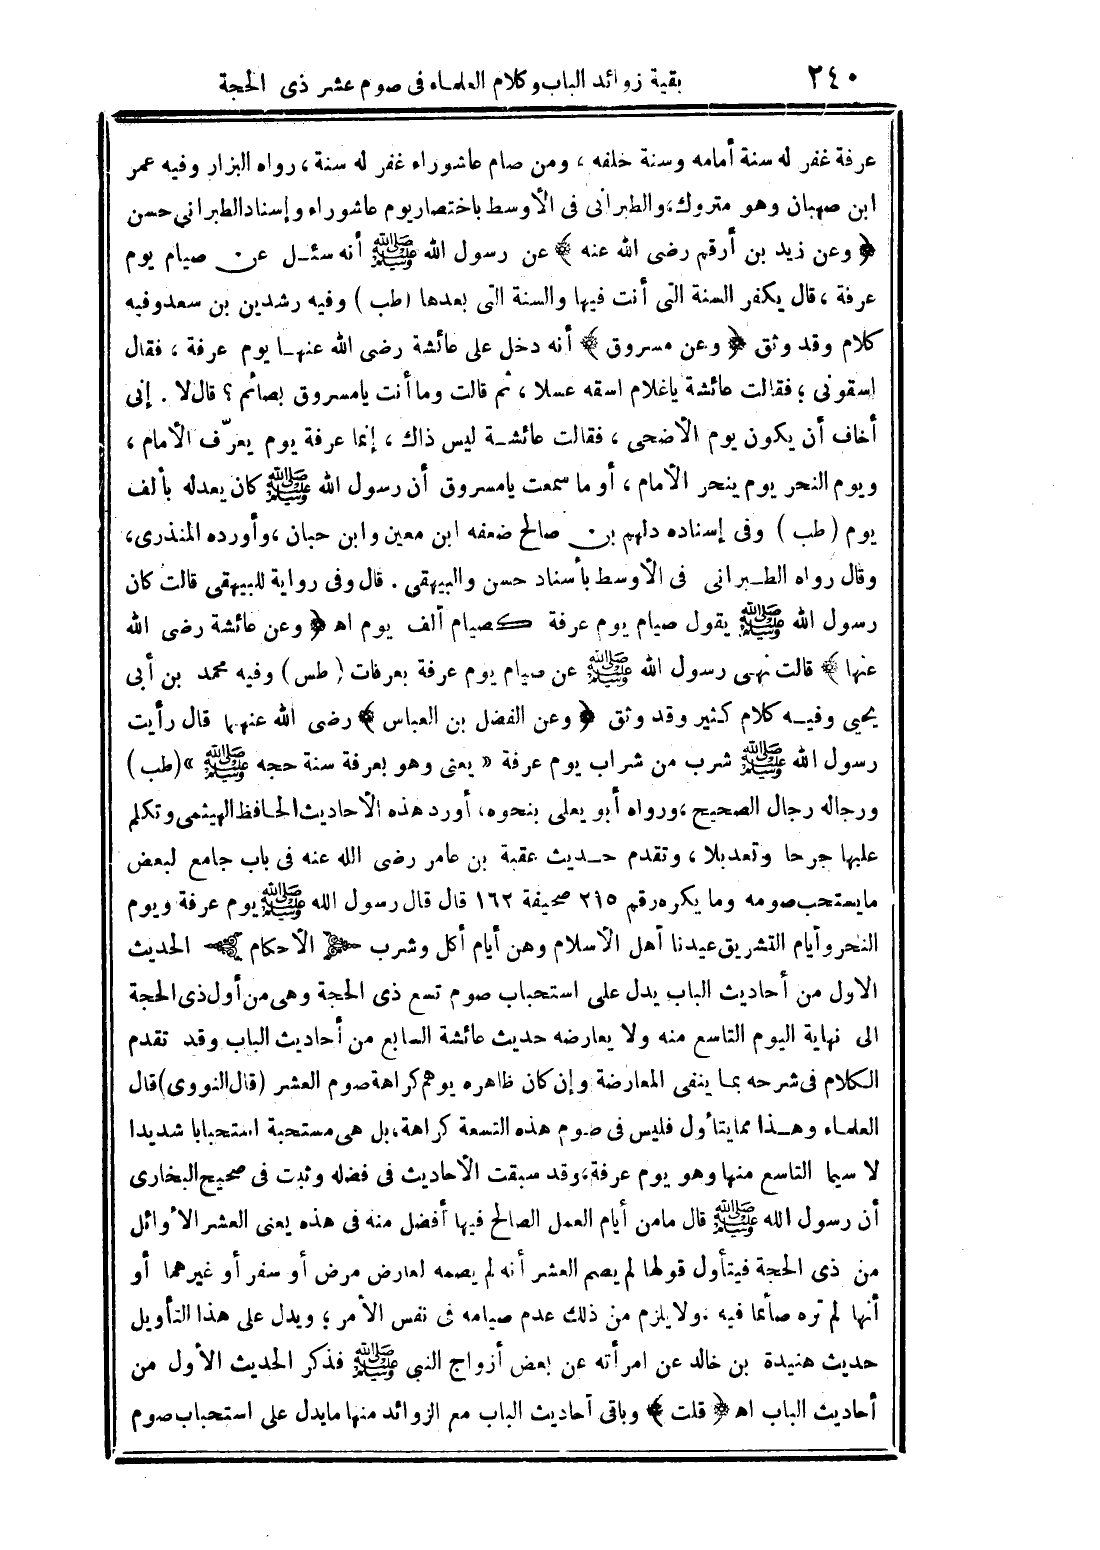 ٢٤٠ بقية زوائد الباب وكلام العلماء فى صوم عشر ذى الحجة
عرفة غفر له سنة أمامه وسنة خلفه ، ومن صام عاشوراء غفر له سنة ، رواه البزار وفيه عمر
ابن صهبان وهو متروك، والطبرانى فى الأوسط باختصار يوم عاشوراء وإسناد الطبرانى حسن
﴿ وعن زيد بن أرقم رضى الله عنه ﴾ عن رسول الله ﷺ أنه سئل عن صيام يوم
عرفة ، قال يكفر السنة التى أنت فيها والسنة التى بعدها ( طب ) وفيه رشدين بن سعد وفيه
كلام وقد وثق ﴿ وعن مسروق ﴾ أنه دخل على عائشة رضى الله عنها يوم عرفة ، فقال
اسقونى ؛ فقالت عائشة ياغلام اسقه عسلا ، ثم قالت وما أنت يامسروق بصائم ؟ قال لا . إنى
أخاف أن يكون يوم الأضحى ، فقالت عائشة ليس ذاك ، إنما عرفة يوم يعرّف الأمام ،
ويوم النحر يوم ينحر الأمام ، أو ما سمعت يامسروق أن رسول الله ﷺ كان يعدله بألف
يوم ( طب ) وفى إسناده دلهم بن صالح ضعفه ابن معين وابن حبان ، وأورده المنذرى،
وقال رواه الطبرانى فى الأوسط بأسناد حسن والبيهقى . قال وفى رواية للبيهقى قالت كان
رسول الله ﷺ يقول صيام يوم عرفة كصيام ألف يوم اه ﴿ وعن عائشة رضى الله
عنها ﴾ قالت نهى رسول الله ﷺ عن صيام يوم عرفة بعرفات ( طس ) وفيه محمد بن أبى
يحيى وفيه كلام كثير وقد وثق ﴿ وعن الفضل بن العباس ﴾ رضى الله عنهما قال رأيت
رسول الله ﷺ شرب من شراب يوم عرفة « يعنى وهو بعرفة سنة حجه ﷺ » ( طب )
ورجاله رجال الصحيح ، ورواه أبو يعلى بنحوه، أورد هذه الأحاديث الحافظ الهيثمى وتكلم
عليها جرحا وتعديلا ، وتقدم حديث عقبة بن عامر رضى الله عنه فى باب جامع لبعض
مايستحب صومه وما يكره رقم ٢١٥ صحيفة ١٦٢ قال قال رسول الله ﷺ يوم عرفة ويوم
النحر وأيام التشريق عيدنا أهل الأسلام وهن أيام أكل وشرب ﴿ الأحكام ﴾ الحديث
الاول من أحاديث الباب يدل على استحباب صوم تسع ذى الحجة وهى من أول ذى الحجة
الى نهاية اليوم التاسع منه ولا يعارضه حديث عائشة السابع من أحاديث الباب وقد تقدم
الكلام فى شرحه بما ينفى المعارضة وإن كان ظاهره يوهم كراهة صوم العشر ( قال النووى ) قال
العلماء وهذا مما يتأول فليس فى صوم هذه التسعة كراهة، بل هى مستحبة استحبابا شديدا
لا سيما التاسع منها وهو يوم عرفة، وقد سبقت الأحاديث فى فضله وثبت فى صحيح البخارى
أن رسول الله ﷺ قال مامن أيام العمل الصالح فيها أفضل منه فى هذه يعنى العشر الأوائل
من ذى الحجة فيتأول قولها لم يصم العشر أنه لم يصمه لعارض مرض أو سفر أو غيرهما أو
أنها لم تره صائما فيه . ولا يلزم من ذلك عدم صيامه فى نفس الأمر ؛ ويدل على هذا التأويل
حديث هنيدة بن خالد عن امرأته عن بعض أزواج النبى ﷺ فذكر الحديث الأول من
أحاديث الباب اه ﴿ قلت ﴾ وباقى أحاديث الباب مع الزوائد منها مايدل على استحباب صوم